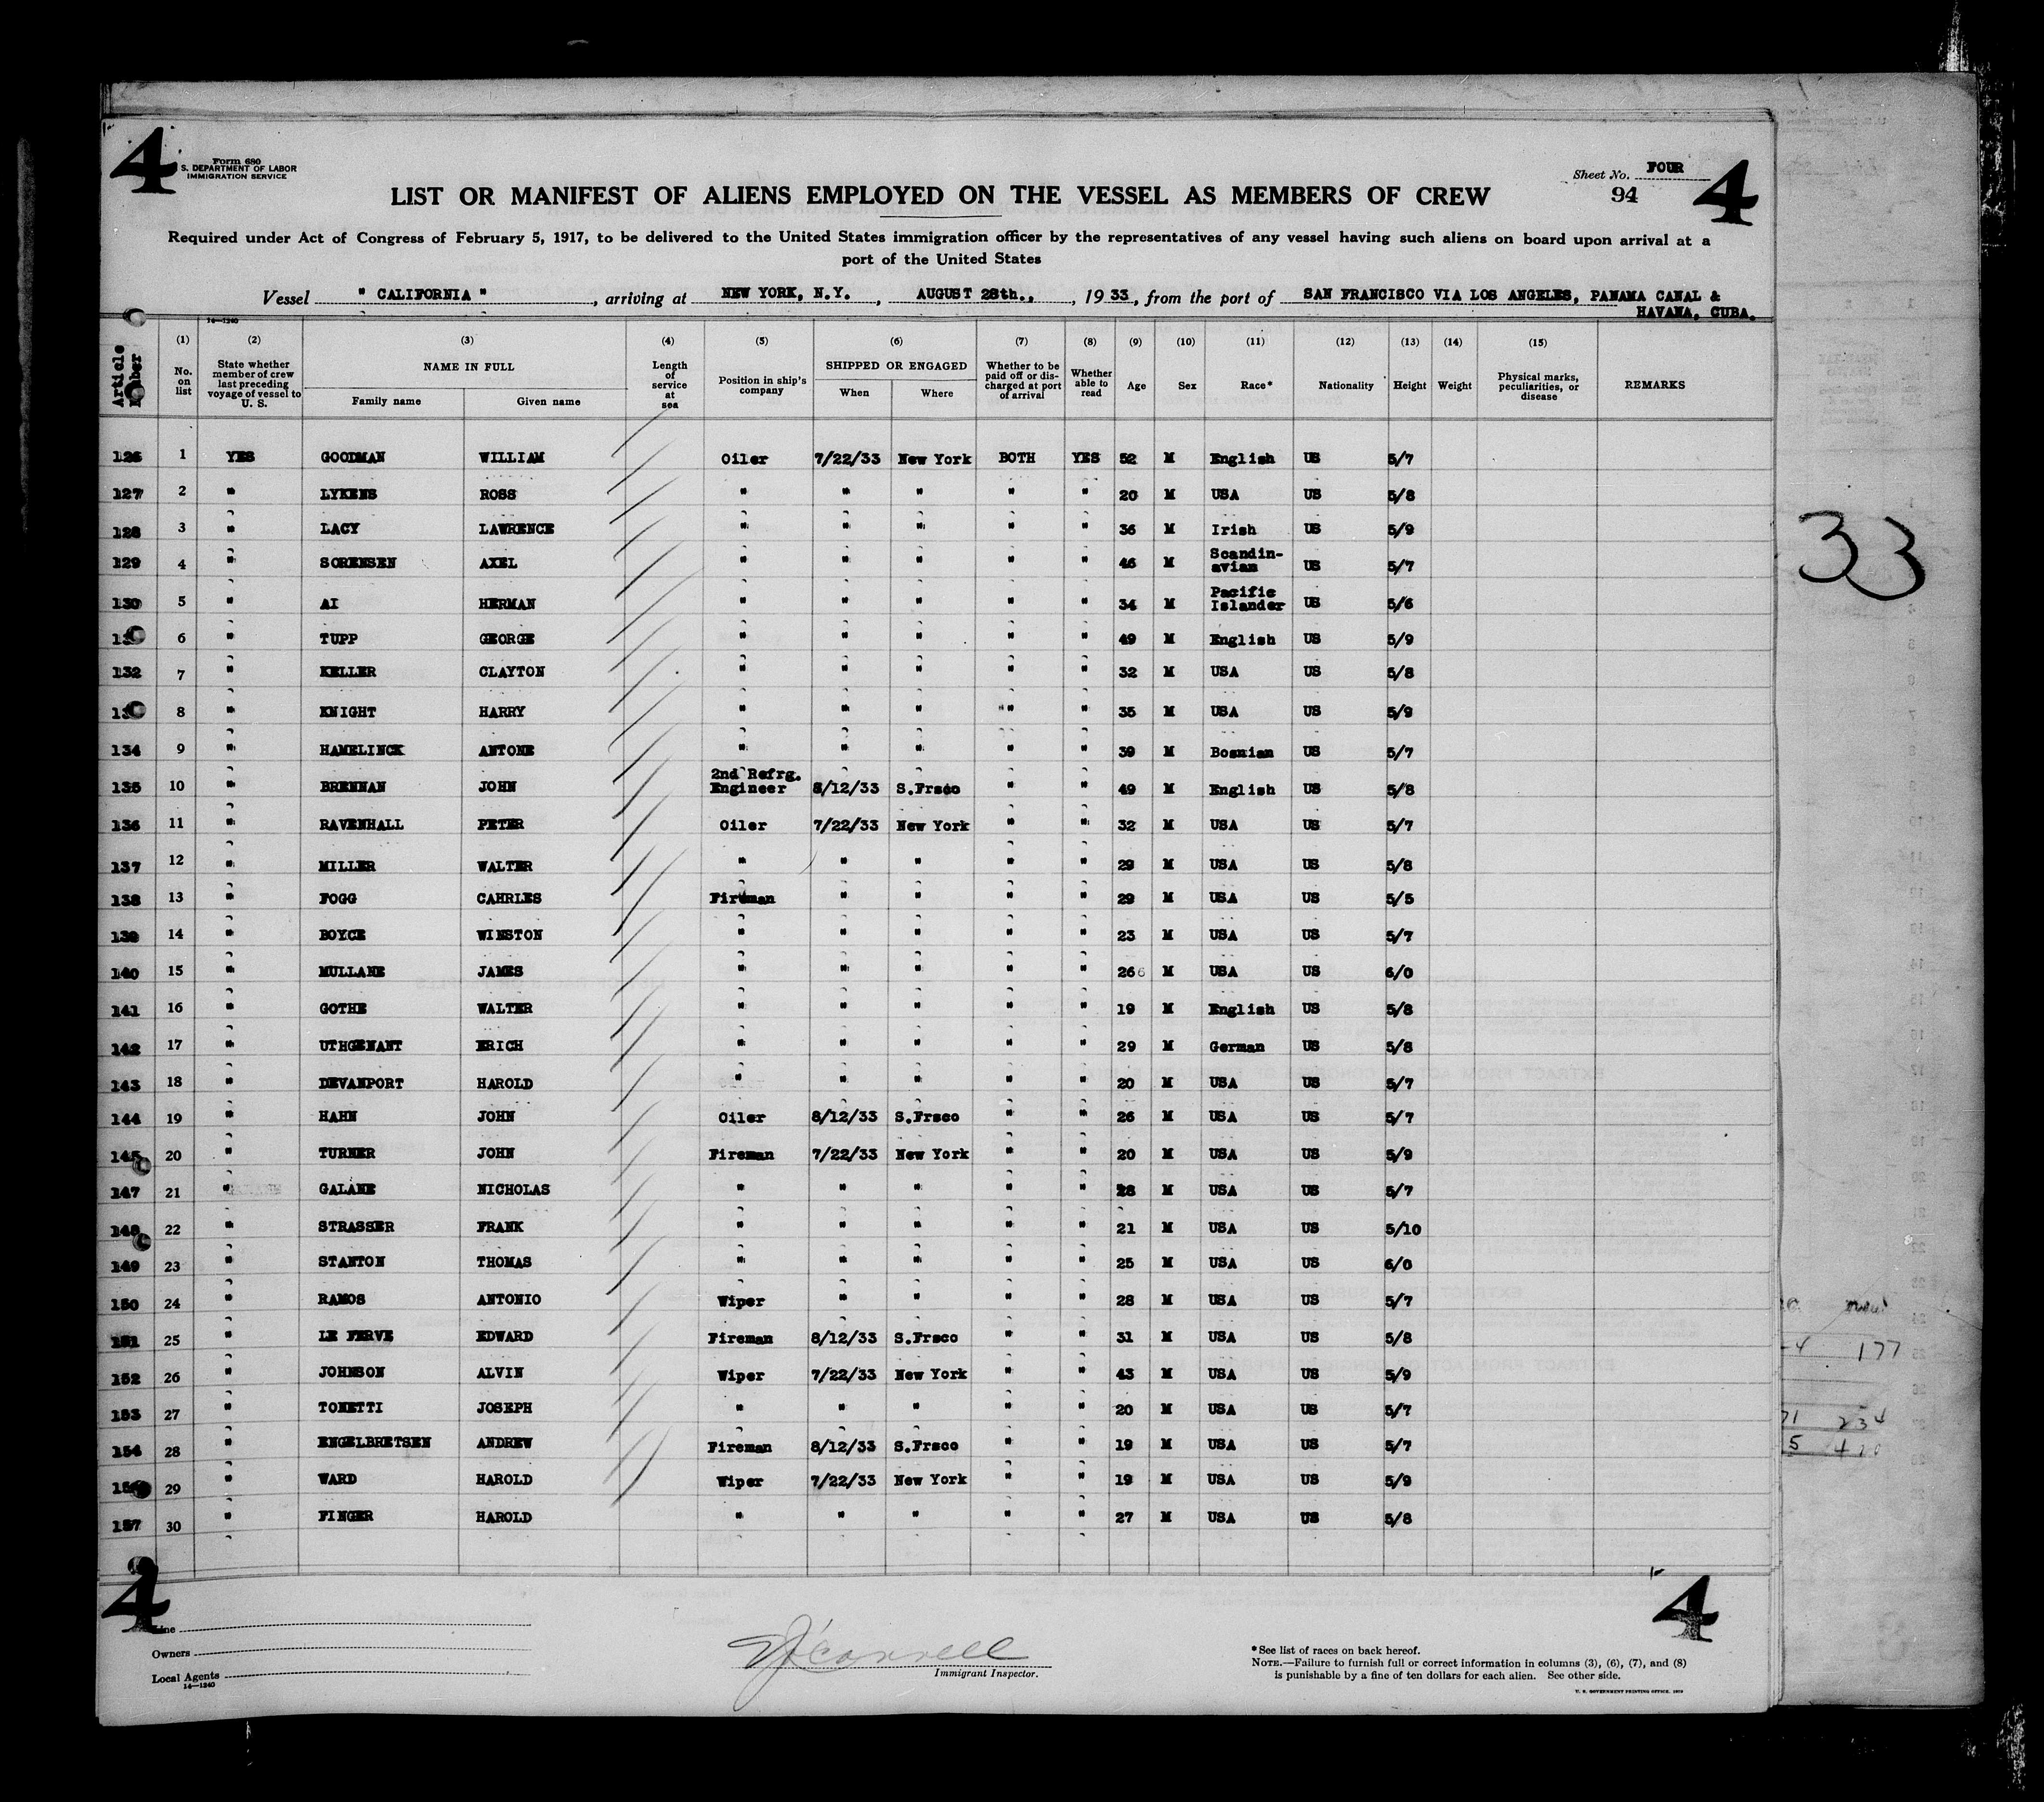 4
Form 680
S. DEPARTMENT OF LABOR
IMMIGRATION SERVICE
Sheet No. FOUR
94
4
LIST OR MANIFEST OF ALIENS EMPLOYED ON THE VESSEL AS MEMBERS OF CREW
Required under Act of Congress of February 5, 1917, to be delivered to the United States immigration officer by the representatives of any vessel having such aliens on board upon arrival at a
port of the United States
Vessel " CALIFORNIA ", arriving at NEW YORK, N.Y., AUGUST 28th., , 1933, from the port of SAN FRANCISCO VIA LOS ANGELES, PANAMA CANAL &
HAVANA, CUBA.
14—1240
Article Number (1) No. on list (2) State whether member of crew last preceding voyage of vessel to U. S. (3) NAME IN FULL Family name Given name (4) Length of service at sea (5) Position in ship's company (6) SHIPPED OR ENGAGED When Where (7) Whether to be paid off or discharged at port of arrival (8) Whether able to read (9) Age (10) Sex (11) Race* (12) Nationality (13) Height (14) Weight (15) Physical marks, peculiarities, or disease REMARKS
126 1 YES GOODMAN WILLIAM Oiler 7/22/33 New York BOTH YES 52 M English US 5/7
127 2 " LYKENS ROSS " " " " " 20 M USA US 5/8
128 3 " LACY LAWRENCE " " " " " 36 M Irish US 5/9
129 4 " SORENSEN AXEL " " " " " 46 M Scandin-avian US 5/7
130 5 " AI HERMAN " " " " " 34 M Pacific Islander US 5/6
13 6 " TUPP GEORGE " " " " " 49 M English US 5/9
132 7 " KELLER CLAYTON " " " " " 32 M USA US 5/8
13 8 " KNIGHT HARRY " " " " " 35 M USA US 5/9
134 9 " HAMELINCK ANTONE " " " " " 39 M Bosnian US 5/7
135 10 " BRENNAN JOHN 2nd Refrg. Engineer 8/12/33 S.Frsco " " 49 M English US 5/8
136 11 " RAVENHALL PETER Oiler 7/22/33 New York " " 32 M USA US 5/7
137 12 " MILLER WALTER " " " " " 29 M USA US 5/8
138 13 " FOGG CAHRLES Fireman " " " " 29 M USA US 5/5
139 14 " BOYCE WINSTON " " " " " 23 M USA US 5/7
140 15 " MULLANE JAMES " " " " " 266 M USA US 6/0
141 16 " GOTHE WALTER " " " " " 19 M English US 5/8
142 17 " UTHGENANT ERICH " " " " " 29 M German US 5/8
143 18 " DEVANPORT HAROLD " " " " " 20 M USA US 5/7
144 19 " HAHN JOHN Oiler 8/12/33 S.Frsco " " 26 M USA US 5/7
145 20 " TURNER JOHN Fireman 7/22/33 New York " " 20 M USA US 5/9
147 21 " GALANE NICHOLAS " " " " " 28 M USA US 5/7
148 22 " STRASSER FRANK " " " " " 21 M USA US 5/10
149 23 " STANTON THOMAS " " " " " 25 M USA US 6/0
150 24 " RAMOS ANTONIO Wiper " " " " 28 M USA US 5/7
151 25 " LE FERVE EDWARD Fireman 8/12/33 S.Frsco " " 31 M USA US 5/8
152 26 " JOHNSON ALVIN Wiper 7/22/33 New York " " 43 M USA US 5/9
153 27 " TONETTI JOSEPH " " " " " 20 M USA US 5/7
154 28 " ENGELBRETSEN ANDREW Fireman 8/12/33 S.Frsco " " 19 M USA US 5/7
29 " WARD HAROLD Wiper 7/22/33 New York " " 19 M USA US 5/9
157 30 " FINGER HAROLD " " " " " 27 M USA US 5/8
33
177
71 234
5
4
4
Line
Owners
Local Agents
14—1240
Immigrant Inspector.
*See list of races on back hereof.
NOTE.—Failure to furnish full or correct information in columns (3), (6), (7), and (8)
is punishable by a fine of ten dollars for each alien. See other side.
U. S. GOVERNMENT PRINTING OFFICE.